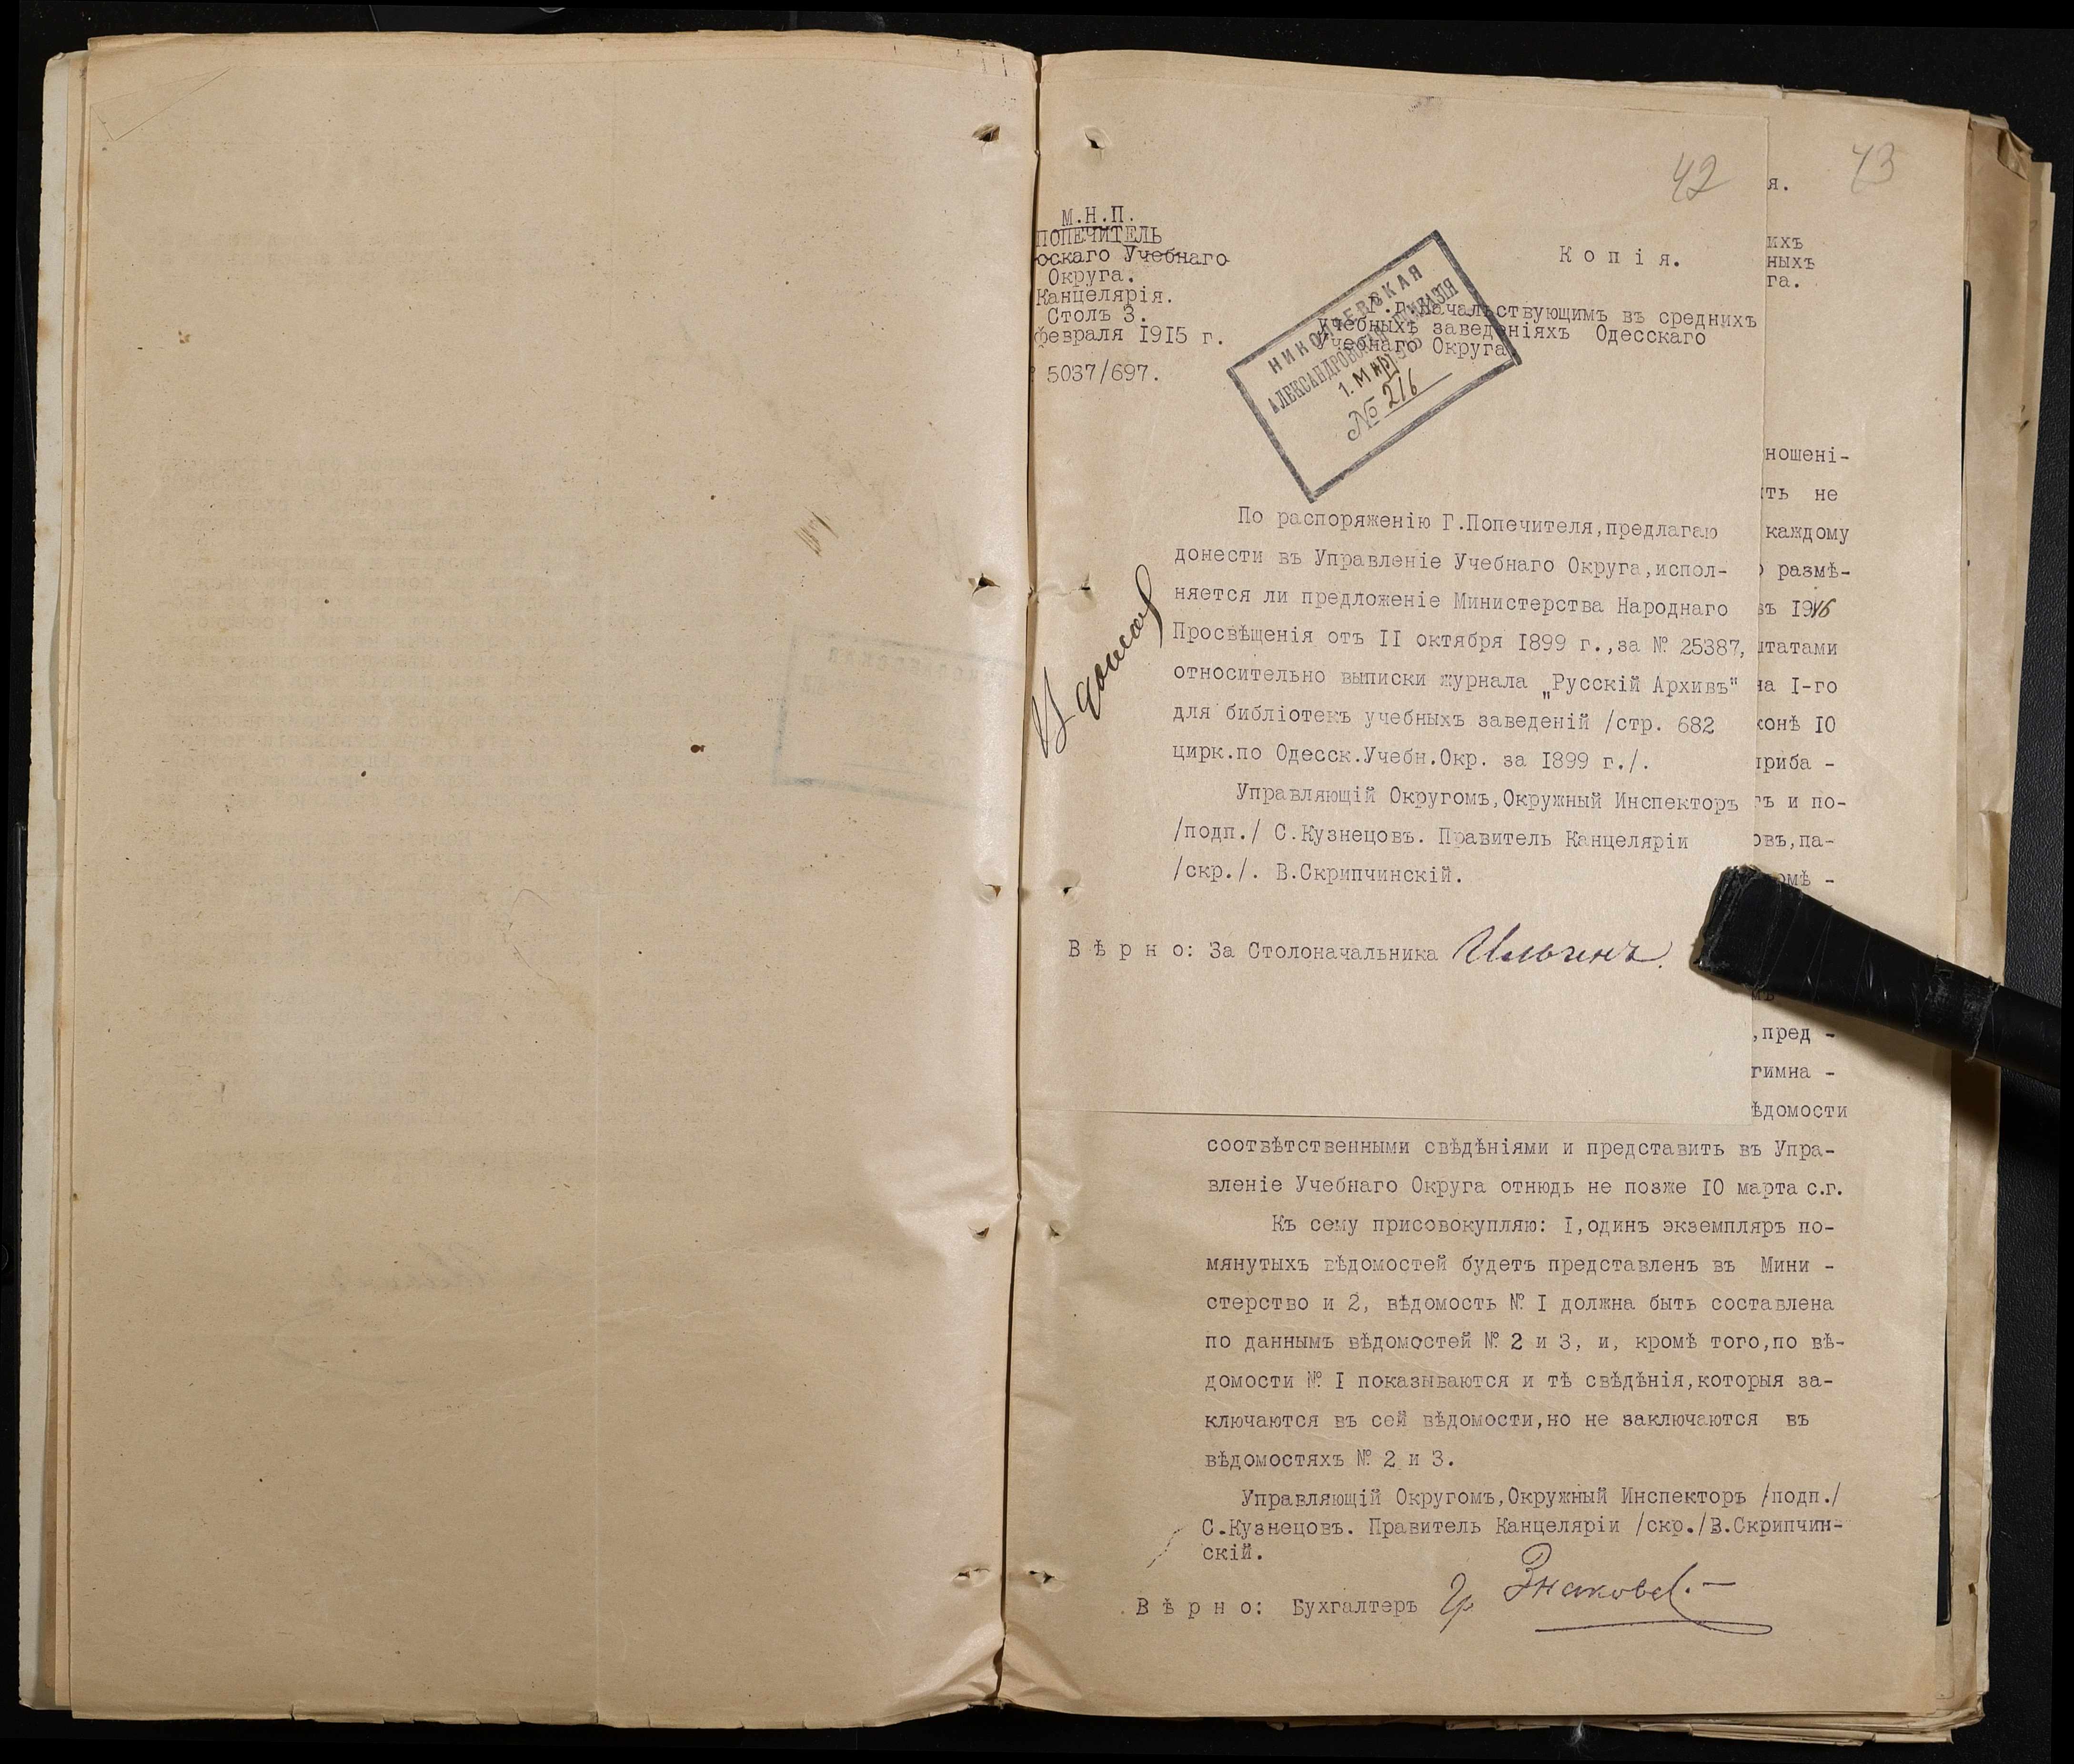 42
43
М.Н.П.
ПОПЕЧИТЕЛЬ
скаго Учебнаго
Округа.
Канцелярія.
Столъ 3.
февраля 1915 г.
5037/697.
Копія.
Г.г.Начальствующимъ въ среднихъ
учебныхъ заведеніяхъ Одесскаго
Учебнаго Округа
НИКОЛАЕВСКАЯ
АЛЕКСАНДРОВСКАЯ ГИМНАЗІЯ
1. Мар
№ 216
По распоряженію Г.Попечителя,предлагаю
донести въ Управленіе Учебнаго Округа,испол-
няется ли предложеніе Министерства Народнаго
Просвѣщенія отъ II октября I899 г.,за № 25387,
относительно выписки журнала „Русскій Архивъ"
для библіотекъ учебныхъ заведеній /стр. 682
цирк.по Одесск.Учебн.Окр. за I899 г./.
Управляющій Округомъ,Окружный Инспекторъ
/подп./ С.Кузнецовъ. Правитель Канцеляріи
/скр./. В.Скрипчинскій.
Вѣрно: За Столоначальника Ильинъ.
я.
ихъ
ныхъ
га.
ношені-
ть не
каждому
размѣ-
въ 1916
штатами
на I-го
конѣ IO
приба -
ъ и по-
овъ,па-
омѣ -
мъ
,пред -
гимна -
ѣдомости
соотвѣтственными свѣдѣніями и представить въ Упра-
вленіе Учебнаго Округа отнюдь не позже IO марта с.г.
Къ сему присовокупляю: I,одинъ экземпляръ по-
мянутыхъ вѣдомостей будетъ представленъ въ Мини -
стерство и 2, вѣдомость № I должна быть составлена
по даннымъ вѣдомостей № 2 и 3, и, кромѣ того,по вѣ-
домости № I показываются и тѣ свѣдѣнія,которыя за-
ключаются въ сей вѣдомости,но не заключаются въ
вѣдомостяхъ № 2 и 3.
Управляющій Округомъ,Окружный Инспекторъ /подп./
С.Кузнецовъ. Правитель Канцеляріи /скр./В.Скрипчин-
скій.
Вѣрно: Бухгалтеръ